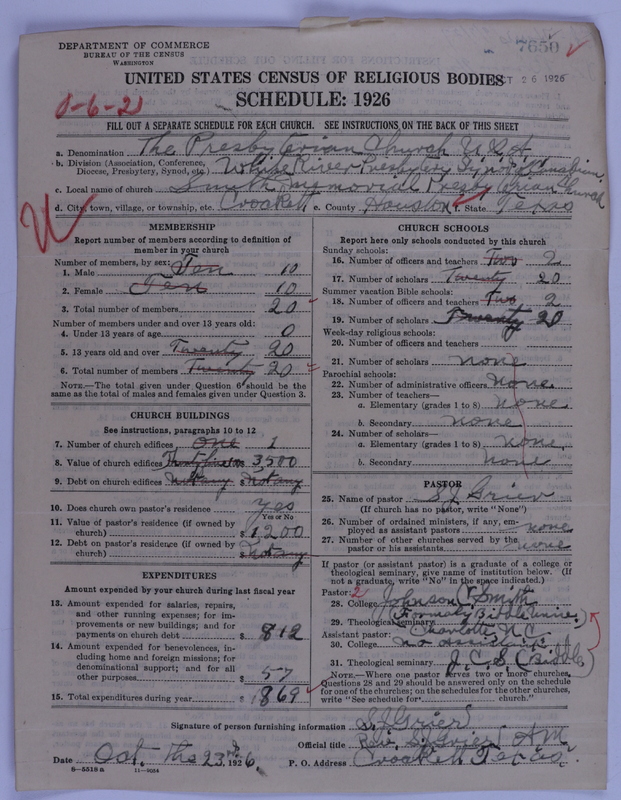 DEPARTMENT OF COMMERCE
BUREAU OF THE CENSUS
WASHINGTON
7650
UNITED STATES CENSUS OF RELIGIOUS BODIES
OCT 26 1926
SCHEDULE: 1926
FILL OUT A SEPARATE SCHEDULE FOR EACH CHURCH. SEE INSTRUCTIONS ON THE BACK OF THIS SHEET
a. Denomination The Presbyterian Church U.S.A.
b. Division (Association, Conference, Diocese, Presbytery, Synod, etc.) White River Presbytery Synod Canadian
c. Local name of church Smith Memorial Presbyterian Church
d. City, town, village, or township, etc. Crockett e. County Houston f. State Texas
MEMBERSHIP
Report number of members according to definition of member in your church
Number of members, by sex:
1. Male Ten 10
2. Female Ten 10
3. Total number of members 20
Number of members under and over 13 years old:
4. Under 13 years of age 0
5. 13 years old and over Twenty 20
6. Total number of members Twenty 20
NOTE.—The total given under Question 6 should be the same as the total of males and females given under Question 3.
CHURCH BUILDINGS
See instructions, paragraphs 10 to 12
7. Number of church edifices one 1
8. Value of church edifices 3,500
9. Debt on church edifices not any $ not any
10. Does church own pastor's residence yes
Yes or No
11. Value of pastor's residence (if owned by church) $ 1,200
12. Debt on pastor's residence (if owned by church) $ not any
EXPENDITURES
Amount expended by your church during last fiscal year
13. Amount expended for salaries, repairs, and other running expenses; for improvements or new buildings; and for payments on church debt $ 812
14. Amount expended for benevolences, including home and foreign missions; for denominational support; and for all other purposes $ 57
15. Total expenditures during year $ 869
CHURCH SCHOOLS
Report here only schools conducted by this church
Sunday schools:
16. Number of officers and teachers Two 2
17. Number of scholars Twenty 20
Summer vacation Bible schools:
18. Number of officers and teachers Two 2
19. Number of scholars Twenty 20
Week-day religious schools:
20. Number of officers and teachers
21. Number of scholars none
Parochial schools:
22. Number of administrative officers none
23. Number of teachers—
a. Elementary (grades 1 to 8) none
b. Secondary none
24. Number of scholars—
a. Elementary (grades 1 to 8) none
b. Secondary none
PASTOR
25. Name of pastor S J Grier
(If church has no pastor, write "None")
26. Number of ordained ministers, if any, employed as assistant pastors none
27. Number of other churches served by the pastor or his assistants none
If pastor (or assistant pastor) is a graduate of a college or theological seminary, give name of institution below. (If not a graduate, write "No" in the space indicated.)
Pastor: 2
28. College Johnson C. Smith
(Formerly Biddle Univ.)
29. Theological seminary Charlotte N.C.
Assistant pastor:
30. College no assistant
31. Theological seminary J. C. S. (Biddle)
NOTE.—Where one pastor serves two or more churches, Questions 28 and 29 should be answered only on the schedule for one of the churches; on the schedules for the other churches, write "See schedule for church."
Signature of person furnishing information S J Grier
Official title Rev. S J Grier A M
Date Oct. the 23rd, 1926. P. O. Address Crockett Texas.
8—5518 a 11—9084